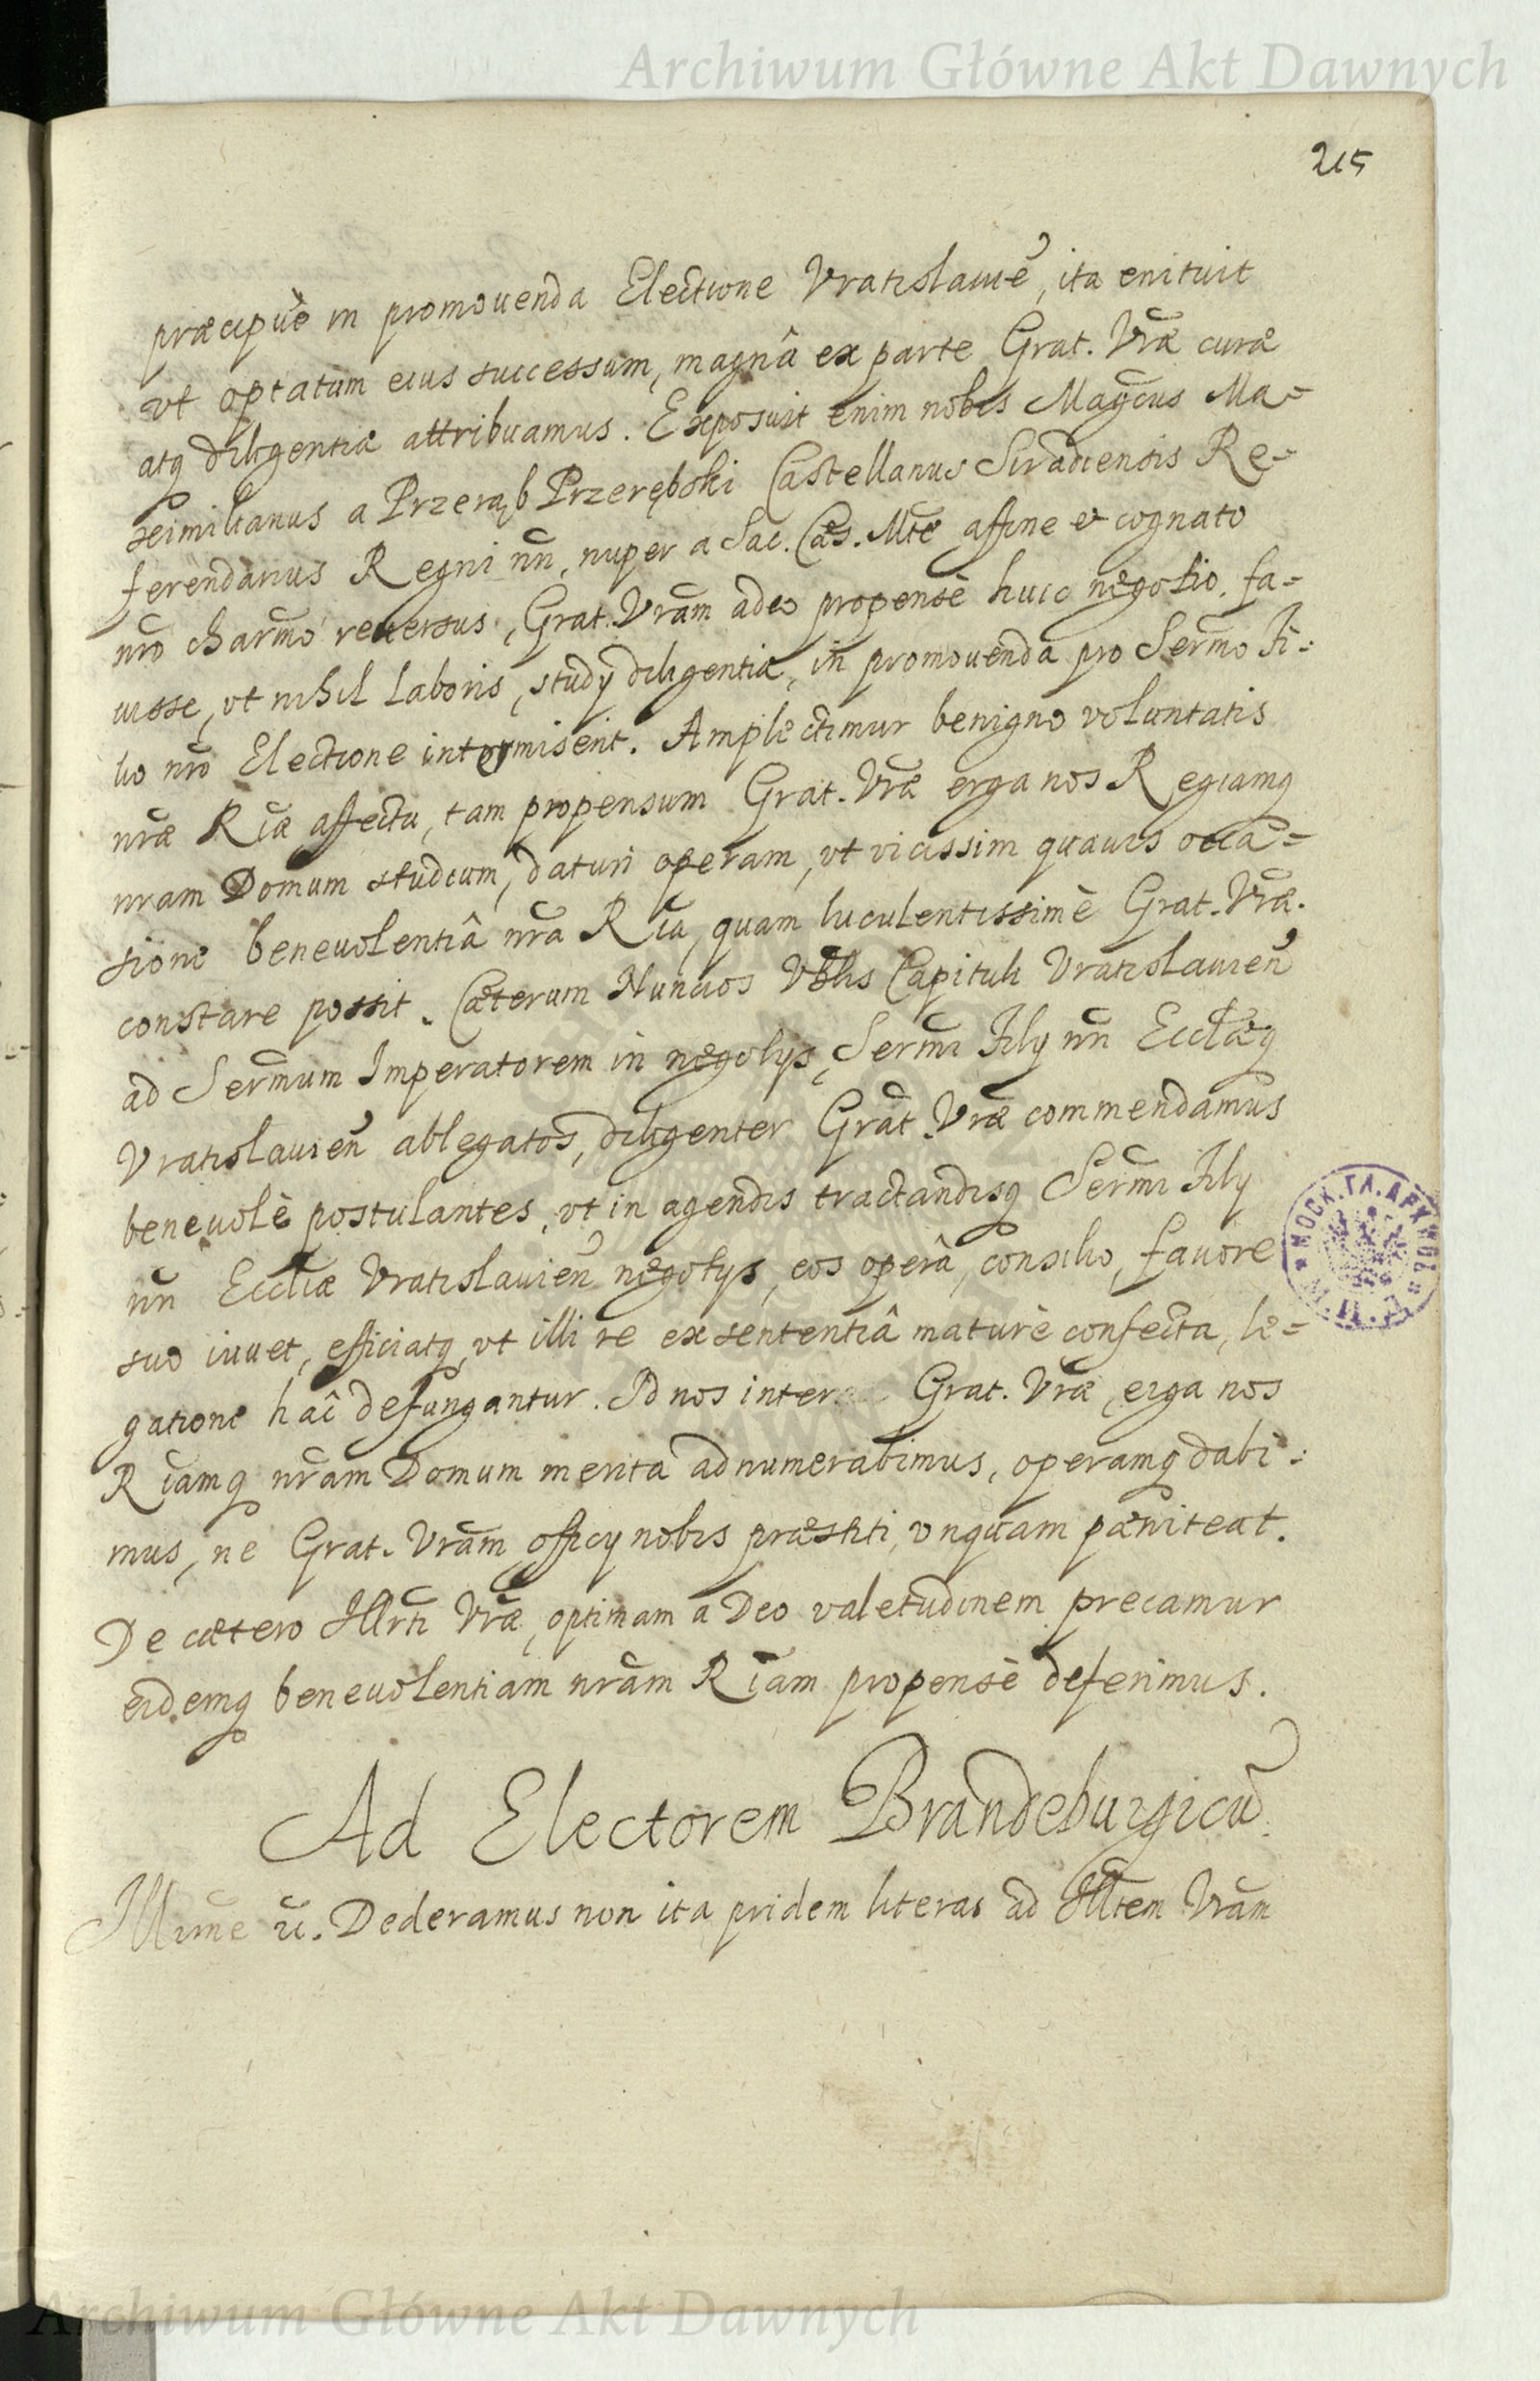 Archiwum Główne Akt Dawnych
215
præcipuè in promouenda Electione Vratislauiẽ, ita enituit
vt optatum eius successum, magnâ ex parte Grat. Vræ curæ
atq diligentiæ attribuamus. Exposuit enim nobis Magcus Ma=
ximilianus a Przerąb Przerębski Castellanus Siradiensis Re=
ferendarius Regni nri, nuper a Sac. Cæs. Mte affine et cognato
nro charmo reuersus, Grat. Vram adeo propensè huic negotio fa=
uisse, vt nihil laboris, studÿ diligentiæ, in promouenda pro Sermo Fi=
lio nro Electione intermiserit. Amplectimur benigno voluntatis
nræ Riæ affectu, tam propensum Grat. Vræ erga nos Regiamq
nram Domum studium, daturi operam, vt vicissim quauis occa=
sione beneuolentiâ nra Ria, quam luculentissimè Grat. Vræ.
constare possit. Cæterum Nuncios Vblis Capituli Vratislauien
ad Sermum Imperatorem in negotÿs, Sermi Filÿ nri Eccliæq
Vratislauien ablegatos, diligenter Grat. Vræ commendamus
beneuolè postulantes, vt in agendis tractandisq Sermi Filÿ
nri Eccliæ Vratislauien negotÿs, eos operâ, consilio, fauore
suo iuuet, efficiatq, vt illi re ex sententiâ maturè confecta, le=
gatione hac defungantur. Id nos inter Grat. Vræ, erga nos
Riamq nram Domum merita adnumerabimus, operamq dabi=
mus, ne Grat. Vram officÿ nobis præstiti, vnquam pæniteat.
De cætero Illrti Vræ, optimam a Deo valetudinem precamur
eidemq beneuolentiam nram Riam propensè deferimus.
Ad Electorem Brandeburgicũ.
Illume etc. Dederamus non ita pridem literas ad Illtem Vram
Archiwum Główne Akt Dawnych